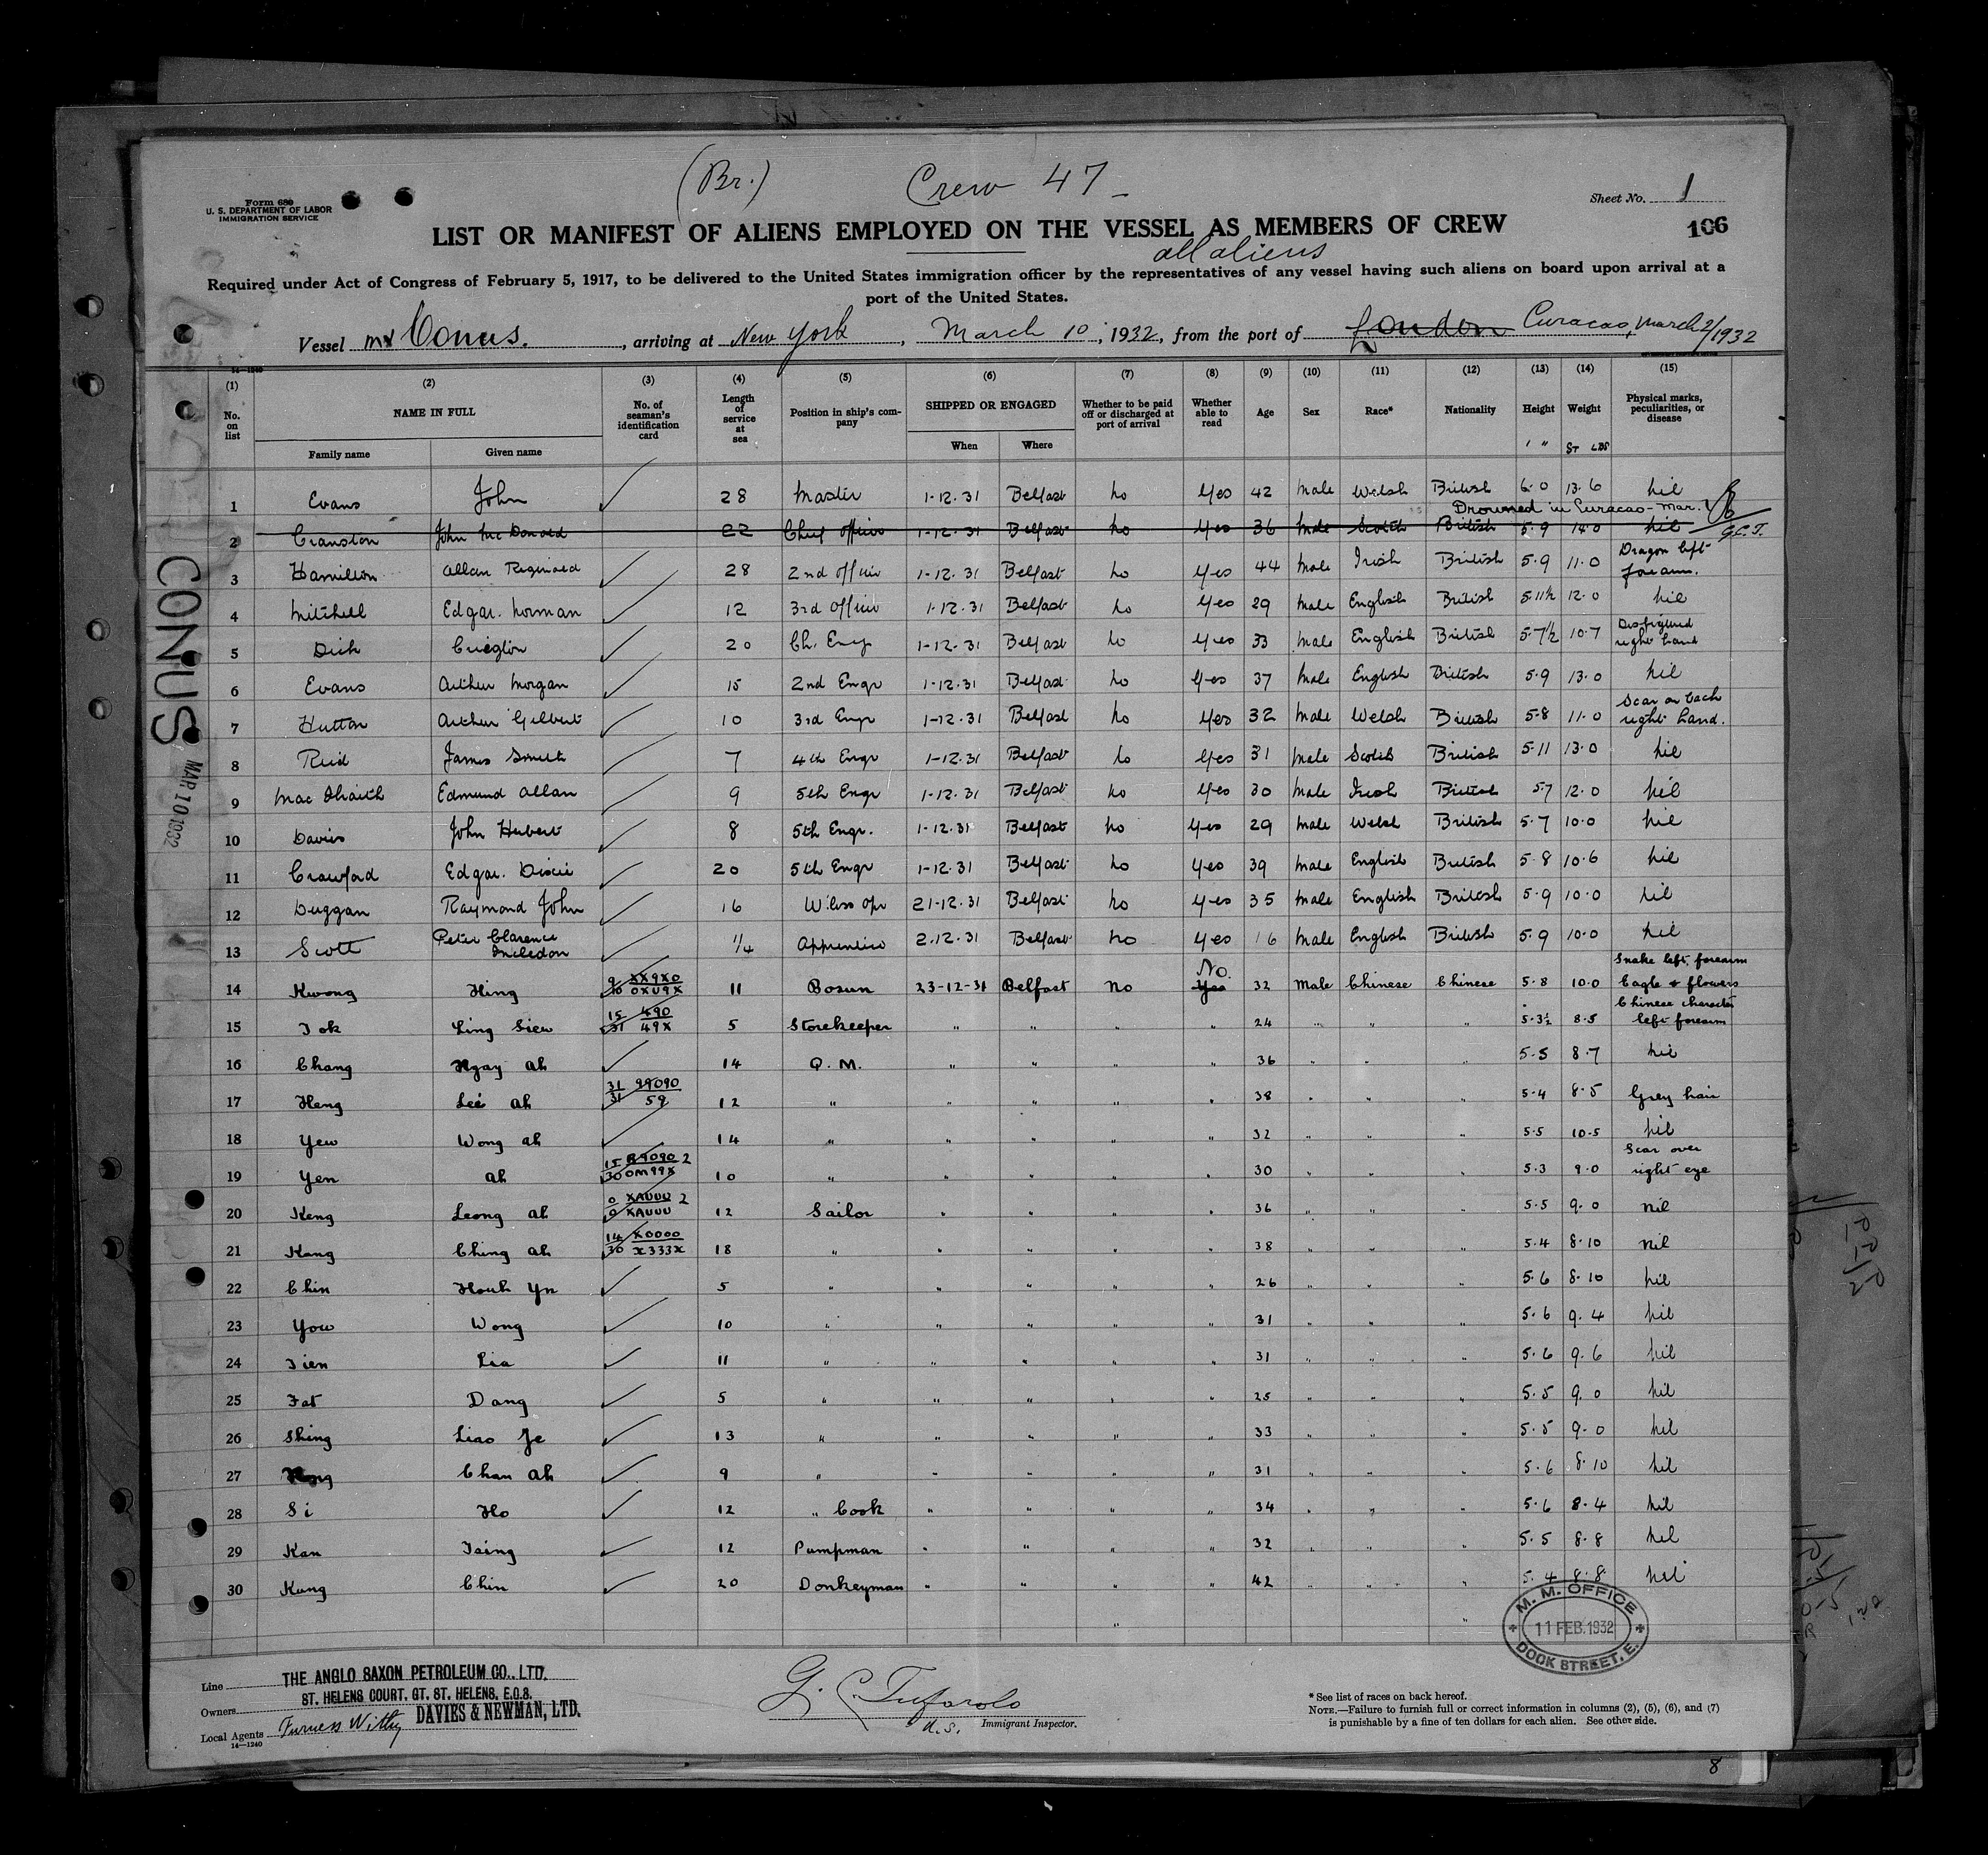 (Br.) Crew 47 -
Form 680
U. S. DEPARTMENT OF LABOR
IMMIGRATION SERVICE
Sheet No. 1
106
LIST OR MANIFEST OF ALIENS EMPLOYED ON THE VESSEL AS MEMBERS OF CREW
all aliens
Required under Act of Congress of February 5, 1917, to be delivered to the United States immigration officer by the representatives of any vessel having such aliens on board upon arrival at a
port of the United States.
Vessel Conus., arriving at New York, March 10, 1932, from the port of London Curacao, March 2/1932
14—1240
(1) (2) (3) (4) (5) (6) (7) (8) (9) (10) (11) (12) (13) (14) (15)
No. on list NAME IN FULL No. of seaman's identification card Length of service at sea Position in ship's company SHIPPED OR ENGAGED Whether to be paid off or discharged at port of arrival Whether able to read Age Sex Race* Nationality Height Weight Physical marks, peculiarities, or disease
Family name Given name When Where ' " ST LBS
1 Evans John 28 Master 1-12.31 Belfast No Yes 42 Male Welsh British 6.0 13.6 nil
Drowned in Curacao - Mar.
2 Cranston John McDonald 22 Chief officer 1-12.31 Belfast No Yes 36 Male Scotch British 5.9 14.0 nil G.C.T.
3 Hamilton Allan Reginald 28 2nd officer 1-12.31 Belfast No Yes 44 Male Irish British 5.9 11.0 Dragon left forearm.
4 Mitchell Edgar. Norman 12 3rd officer 1-12.31 Belfast No Yes 29 Male English British 5.11½ 12.0 nil
5 Dick 20 Ch. Eng 1-12.31 Belfast No Yes 33 Male English British 5.7½ 10.7 Disfigured right hand
6 Evans Arthur Morgan 15 2nd Engr 1-12.31 Belfast No Yes 37 Male English British 5.9 13.0 nil
7 Hutton Arthur Gilbert 10 3rd Engr 1-12.31 Belfast No Yes 32 Male Welsh British 5.8 11.0 Scar on back right hand.
8 Reid James Smith 7 4th Engr 1-12.31 Belfast No Yes 31 Male Scotch British 5.11 13.0 nil
9 Edmund Allan 9 5th Engr 1-12.31 Belfast No Yes 30 Male Irish British 5.7 12.0 nil
10 Davies John Hubert 8 5th Engr. 1-12.31 Belfast No Yes 29 Male Welsh British 5.7 10.0 nil
11 Crawford Edgar. 20 5th Engr 1-12.31 Belfast No Yes 39 Male English British 5.8 10.6 nil
12 Duggan Raymond John 16 W'less opr 21-12.31 Belfast No Yes 35 Male English British 5.9 10.0 nil
13 Scott Peter Clarence Incledon 1/4 Apprentice 2.12.31 Belfast No Yes 16 Male English British 5.9 10.0 nil
14 Kwong Hing 9 XX9X0 / 10 0XU9X 11 Bosun 23-12-31 Belfast No No. Yes 32 Male Chinese Chinese 5.8 10.0 Snake left forearm Eagle & flowers
15 Tok Ling Siew 15 490 / 31 49X 5 Storekeeper " " " " 24 " " " 5.3½ 8.5 Chinese character left forearm
16 Chang Ngay Ah 14 Q. M. " " " " 36 " " " 5.5 8.7 nil
17 Heng Lee Ah 31 99090 / 31 59 12 " " " " " 38 " " " 5.4 8.5 Grey hair
18 Yew Wong Ah 14 " " " " " 32 " " " 5.5 10.5 nil
19 Yen Ah 15 R9090 2 / 30 0M99X 10 " " " " " 30 " " " 5.3 9.0 Scar over right eye
20 Keng Leong Ah 0 XAUUU 2 / 0 XAUUU 12 Sailor " " " " 36 " " " 5.5 9.0 nil
21 Kang Ching Ah 14 X0000 / 30 X333X 18 " " " " " 38 " " " 5.4 8.10 nil
22 Chin Houk Yn 5 " " " " " 26 " " " 5.6 8.10 nil
23 Yow Wong 10 " " " " " 31 " " " 5.6 9.4 nil
24 Tien Lia 11 " " " " " 31 " " " 5.6 9.6 nil
25 Fat Dang 5 " " " " " 25 " " " 5.5 9.0 nil
26 Shing Liao Je 13 " " " " " 33 " " " 5.5 9.0 nil
27 Chan Ah 9 " " " " " 31 " " " 5.6 8.10 nil
28 Si Ho 12 " Cook " " " " 34 " " " 5.6 8.4 nil
29 Kan Tsing 12 Pumpman " " " " 32 " " " 5.5 8.8 nil
30 Kung Chin 20 Donkeyman " " " " 42 " " " 5.4 8.8 nil
CONUS
MAR 10 1932
M. M. OFFICE
11 FEB. 1932
DOCK STREET, E.
Line THE ANGLO SAXON PETROLEUM CO., LTD.
ST. HELENS COURT, GT. ST. HELENS, E.C.3.
Owners
Local Agents Furness Withy DAVIES & NEWMAN, LTD.
14—1240
G. C. Tufarolo
U.S. Immigrant Inspector.
* See list of races on back hereof.
NOTE.—Failure to furnish full or correct information in columns (2), (5), (6), and (7)
is punishable by a fine of ten dollars for each alien. See other side.
8